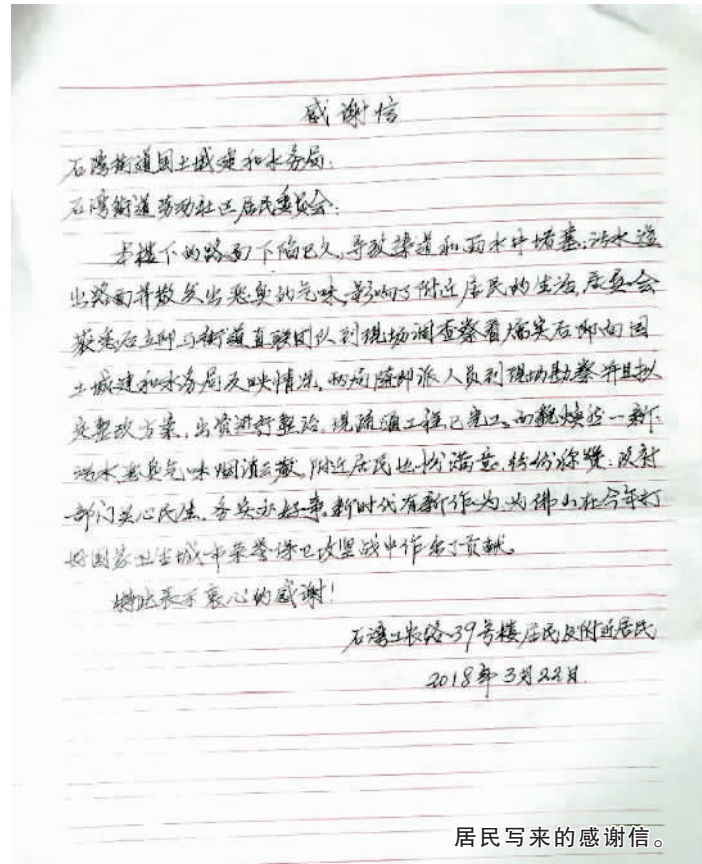 感谢信
石湾街道国土城建和水务局:
石湾街道劳动社区居民委员会:
本楼下的路面下陷已久,导致渠道和雨水井堵塞,污水溢
出路面并散发出恶臭的气味,影响了附近居民的生活,居委会
获悉后立即与街道直联团队到现场调查察看属实后即向国
土城建和水务局反映情况,贵局随即派人员到现场勘察并且拟
定整改方案,出资进行整治,现疏通工程已完工。面貌焕然一新,
污水恶臭气味烟消云散,附近居民十分满意,纷纷称赞:政府
部门关心民生,务实办好事,新时代有新作为,为佛山在今年打
好国家卫生城市荣誉保卫攻坚战中作出了贡献。
特此表示衷心的感谢!
石湾工农路39号楼居民及附近居民
2018年3月22日
居民写来的感谢信。